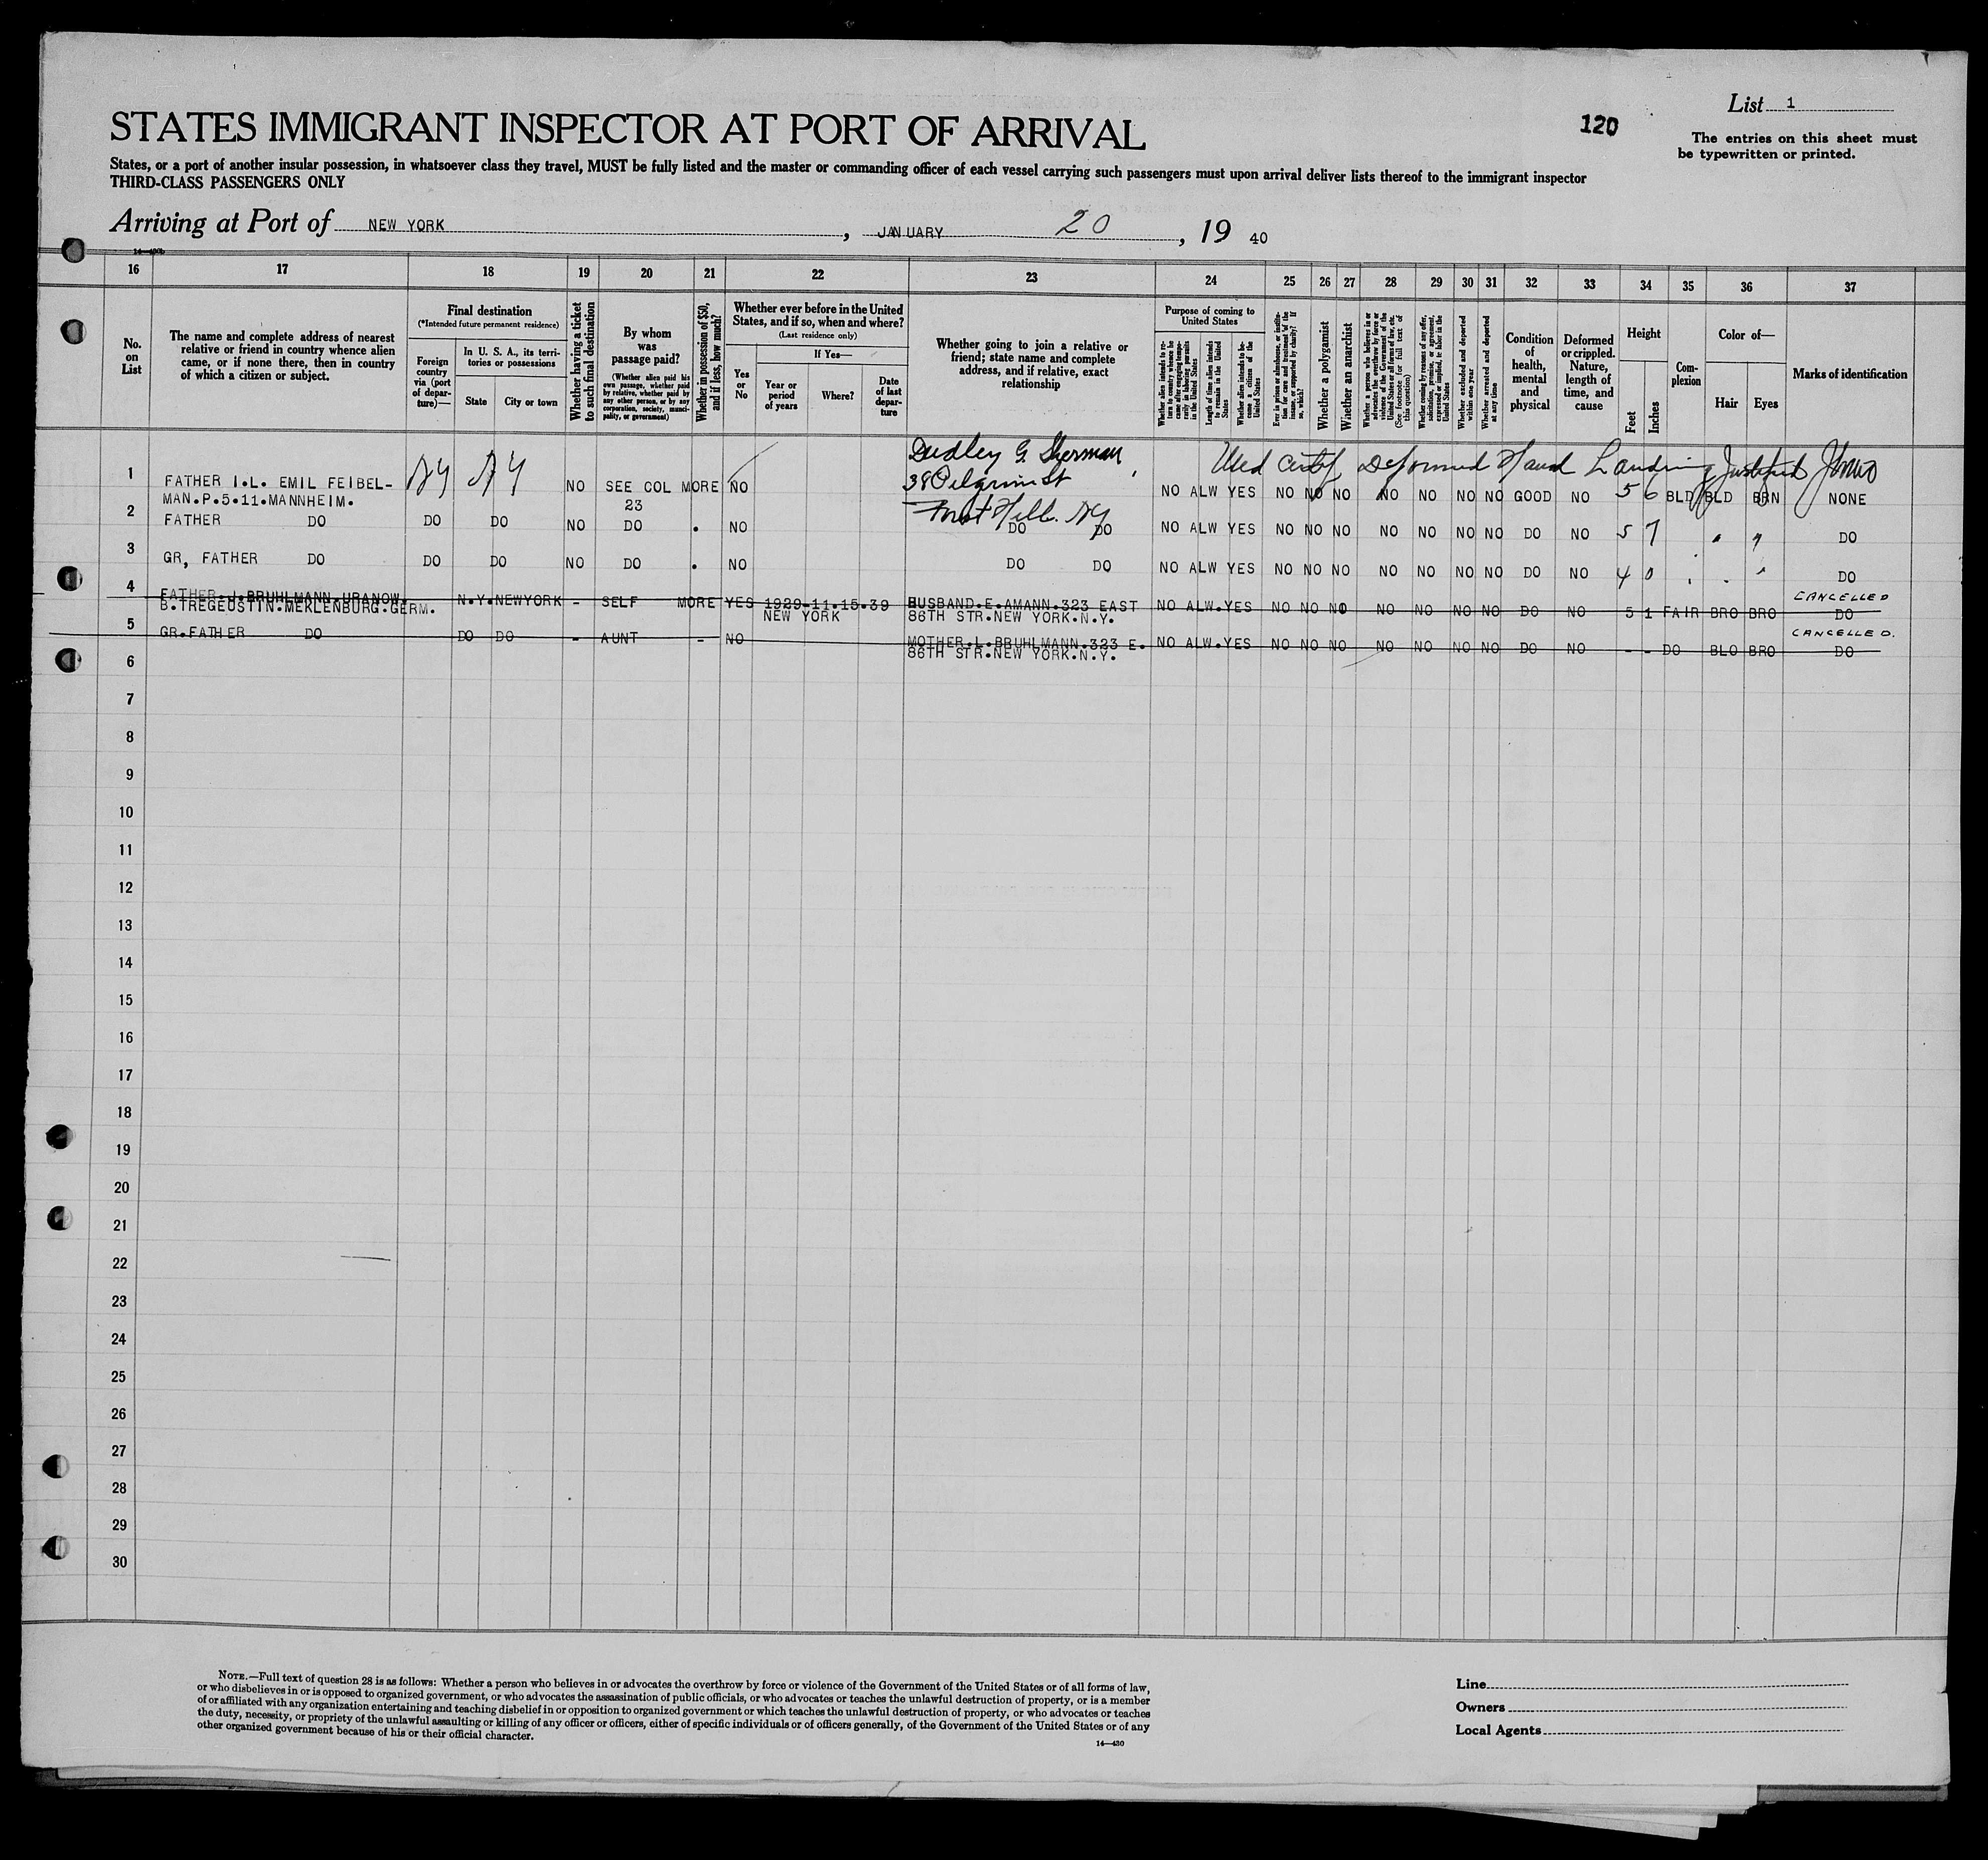 List 1
120
The entries on this sheet must
be typewritten or printed.
STATES IMMIGRANT INSPECTOR AT PORT OF ARRIVAL
States, or a port of another insular possession, in whatsoever class they travel, MUST be fully listed and the master or commanding officer of each vessel carrying such passengers must upon arrival deliver lists thereof to the immigrant inspector
THIRD-CLASS PASSENGERS ONLY
Arriving at Port of NEW YORK, JANUARY 20, 19 40
16 17 18 19 20 21 22 23 24 25 26 27 28 29 30 31 32 33 34 35 36 37
No.
on
List
The name and complete address of nearest
relative or friend in country whence alien
came, or if none there, then in country
of which a citizen or subject.
Final destination
(*Intended future permanent residence)
Foreign
country
via (port
of depar-
ture)—
In U. S. A., its terri-
tories or possessions
State
City or town
Whether having a ticket
to such final destination
By whom
was
passage paid?
(Whether alien paid his
own passage, whether paid
by relative, whether paid by
any other person, or by any
corporation, society, munici-
pality, or government)
Whether in possession of $50,
and if less, how much?
Whether ever before in the United
States, and if so, when and where?
(Last residence only)
Yes
or
No
If Yes—
Year or
period
of years
Where?
Date
of last
depar-
ture
Whether going to join a relative or
friend; state name and complete
address, and if relative, exact
relationship
Purpose of coming to
United States
Whether alien intends to re-
turn to country whence he
came after engaging tempo-
rarily in laboring pursuits
in the United States
Length of time alien intends
to remain in the United
States
Whether alien intends to be-
come a citizen of the
United States
Ever in prison or almshouse, or institu-
tion for care and treatment of the
insane, or supported by charity? If
so, which?
Whether a polygamist
Whether an anarchist
Whether a person who believes in or
advocates the overthrow by force or
violence of the Government of the
United States or all forms of law, etc.
(See footnote for full text of
this question)
Whether coming by reasons of any offer,
solicitation, promise, or agreement,
expressed or implied, to labor in the
United States
Whether excluded and deported
within one year
Whether arrested and deported
at any time
Condition
of
health,
mental
and
physical
Deformed
or crippled.
Nature,
length of
time, and
cause
Height
Feet
Inches
Com-
plexion
Color of—
Hair
Eyes
Marks of identification
Dudley G. Sherman
38 Pilgrim St
Forest Hills. NY
Med Certif. Deformed Hand Landing Justified
1 FATHER I.L. EMIL FEIBEL-
MAN.P.5.11.MANNHEIM. NY NY NO SEE COL MORE NO NO ALW YES NO NO NO NO NO NO NO GOOD NO 5 6 BLD BLD BRN NONE
23
2 FATHER DO DO DO NO DO . NO DO DO NO ALW YES NO NO NO NO NO NO NO DO NO 5 7 " " DO
3 GR, FATHER DO DO DO NO DO . NO DO DO NO ALW YES NO NO NO NO NO NO NO DO NO 4 0 DO
CANCELLED
4 FATHER.J.BRUHLMANN.URANOW.
B.TREGEUSTIN.MEKLENBURG.GERM. N.Y. NEWYORK - SELF MORE YES 1929-11.15.39 HUSBAND.E.AMANN.323 EAST NO ALW.YES NO NO NO NO NO NO NO DO NO 5 1 FAIR BRO BRO DO
NEW YORK 86TH STR.NEW YORK.N.Y.
CANCELLED.
5 GR.FATHER DO DO DO - AUNT - NO MOTHER.L.BRUHLMANN.323 E. NO ALW.YES NO NO NO NO NO NO NO DO NO - - DO BLO BRO DO
86TH STR.NEW YORK.N.Y.
6
7
8
9
10
11
12
13
14
15
16
17
18
19
20
21
22
23
24
25
26
27
28
29
30
NOTE.—Full text of question 28 is as follows: Whether a person who believes in or advocates the overthrow by force or violence of the Government of the United States or of all forms of law,
or who disbelieves in or is opposed to organized government, or who advocates the assassination of public officials, or who advocates or teaches the unlawful destruction of property, or is a member
of or affiliated with any organization entertaining and teaching disbelief in or opposition to organized government or which teaches the unlawful destruction of property, or who advocates or teaches
the duty, necessity, or propriety of the unlawful assaulting or killing of any officer or officers, either of specific individuals or of officers generally, of the Government of the United States or of any
other organized government because of his or their official character.
14—430
Line
Owners
Local Agents